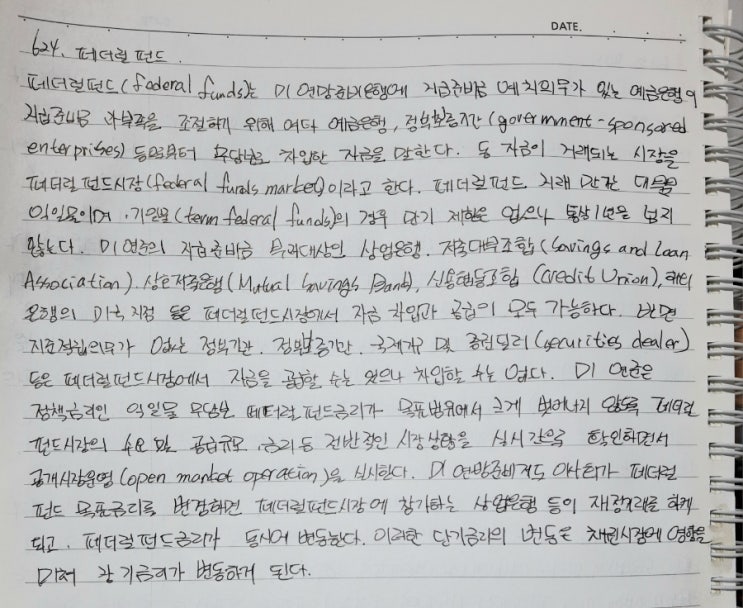 DATE.
624. 페더럴 펀드.
페더럴펀드(federal funds)는 미 연방준비은행에 지급준비금 예치의무가 있는 예금은행이
지급준비금 과부족을 조절하기 위해 여타 예금은행, 정부보증기관(government-sponsored
enterprises) 등으로부터 무담보로 차입한 자금을 말한다. 동 자금이 거래되는 시장을
페더럴펀드시장(federal funds market)이라고 한다. 페더럴펀드 거래 만기는 대부분
익일물이며, 기일물(term federal funds)의 경우 만기 제한은 없으나 통상 1년을 넘지
않는다. 미 연준의 지급준비금 부과대상인 상업은행, 저축대부조합(Savings and Loan
Association), 상호저축은행(Mutual Savings Bank), 신용협동조합(Credit Union), 해외
은행의 미국 지점 등은 페더럴펀드시장에서 자금 차입과 공급이 모두 가능하다. 반면
지준적립의무가 없는 정부기관, 정부보증기관, 국제기구 및 증권딜러(securities dealer)
등은 페더럴펀드시장에서 자금을 공급할 수는 있으나 차입할 수는 없다. 미 연준은
정책금리인 익일물 무담보 페더럴펀드금리가 목표범위에서 크게 벗어나지 않도록 페더럴
펀드시장의 수요 및 공급규모, 금리 등 전반적인 시장상황을 실시간으로 확인하면서
공개시장운영(open market operation)을 실시한다. 미 연방준비제도 이사회가 페더럴
펀드 목표금리를 변경하면 페더럴펀드시장에 참가하는 상업은행 등이 재정거래를 하게
되고, 페더럴펀드금리가 동시에 변동한다. 이러한 단기금리의 변동은 채권시장에 영향을
미쳐 장기금리가 변동하게 된다.